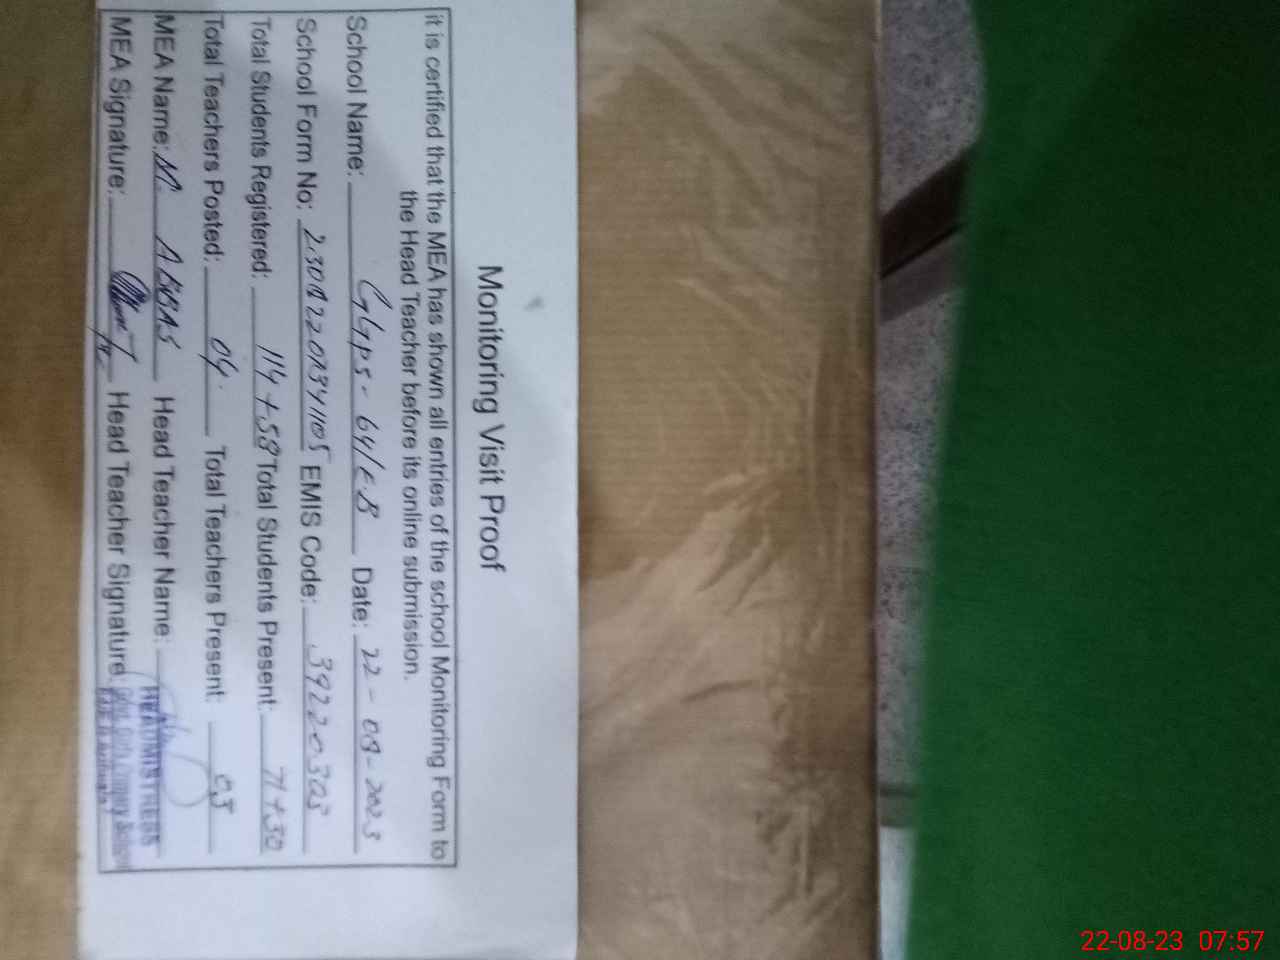 Monitoring Visit Proof
it is certified that the MEA has shown all entries of the school Monitoring Form to
the Head Teacher before its online submission.
School Name: GGPS-64/EB Date: 22-08-2023
School Form No: EMIS Code: 39220303
Total Students Registered: 114+58 Total Students Present: 71+30
Total Teachers Posted: 04 Total Teachers Present: 03
MEA Name: M. ABBAS Head Teacher Name:
MEA Signature: Head Teacher Signature:
HEADMISTRESS
Govt. Girls Primary School
22-08-23 07:57